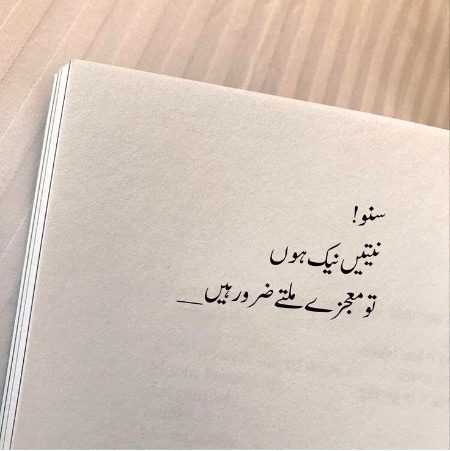 سنو!
نیتیں نیک ہوں
تو معجزے ملتے ضرور ہیں__